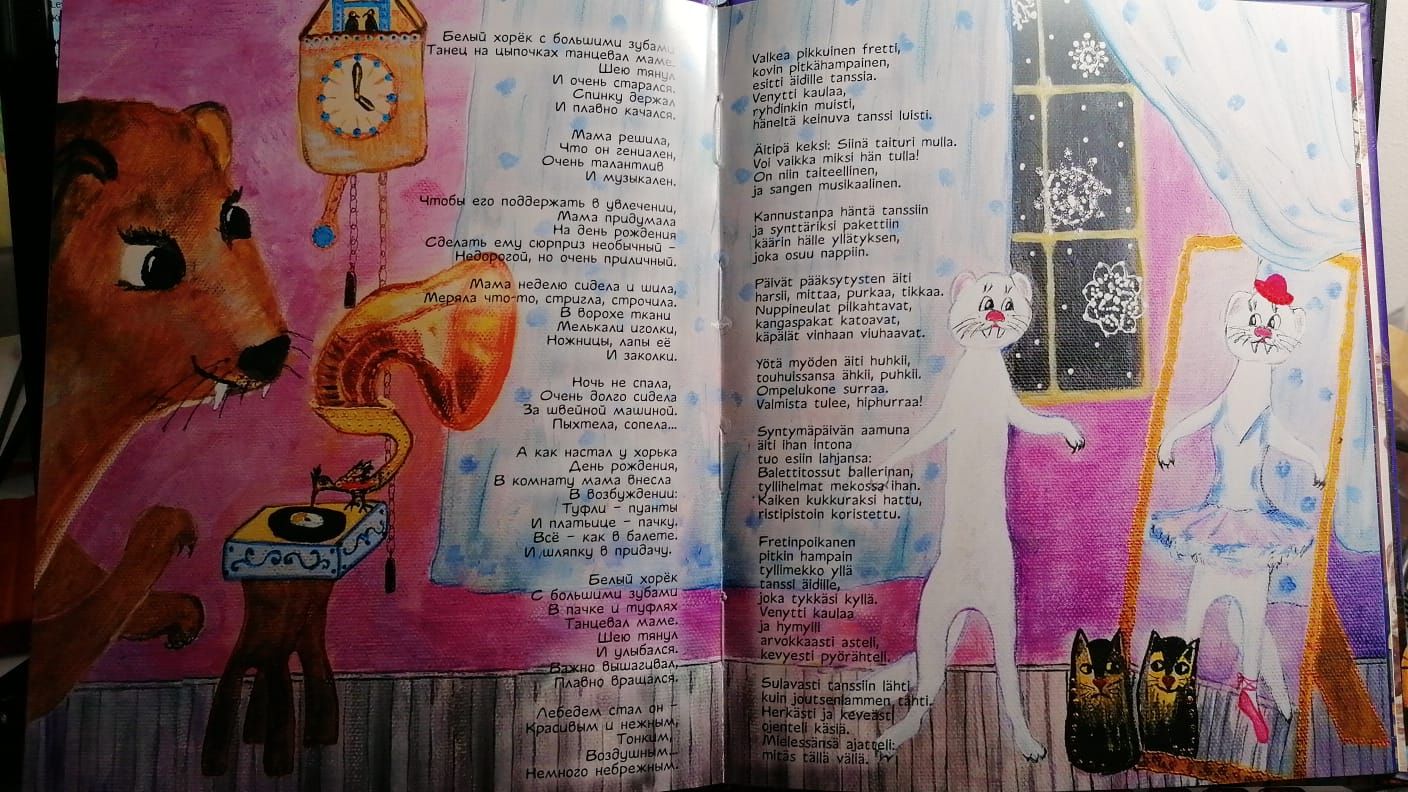 Белый хорёк с большими зубами
Танец на цыпочках танцевал маме.
Шею тянул
И очень старался.
Спинку держал
И плавно качался.
Мама решила,
Что он гениален,
Очень талантлив
И музыкален.
Чтобы его поддержать в увлечении,
Мама придумала
На день рождения
Сделать ему сюрприз необычный –
Недорогой, но очень приличный.
Мама неделю сидела и шила,
Меряла что-то, стригла, строчила.
В ворохе ткани
Мелькали иголки,
Ножницы, лапы её
И заколки.
Ночь не спала,
Очень долго сидела
За швейной машиной.
Пыхтела, сопела...
А как настал у хорька
День рождения,
В комнату мама внесла
В возбуждении:
Туфли – пуанты
И платьице – пачку.
Всё – как в балете.
И шляпку в придачу.
Белый хорёк
С большими зубами
В пачке и туфлях
Танцевал маме.
Шею тянул
И улыбался.
Важно вышагивал,
Плавно вращался.
Лебедем стал он –
Красивым и нежным,
Тонким,
Воздушным...
Немного небрежным.
Valkea pikkuinen fretti,
kovin pitkähampainen,
esitti äidille tanssia.
Venytti kaulaa,
ryhdinkin muisti,
häneltä keinuva tanssi luisti.
Äitipä keksi: Siinä taituri mulla.
Voi vaikka miksi hän tulla!
On niin taiteellinen,
ja sangen musikaalinen.
Kannustanpa häntä tanssiin
ja synttäriksi pakettiin
käärin hälle yllätyksen,
joka osuu nappiin.
Päivät pääksytysten äiti
harsii, mittaa, purkaa, tikkaa.
Nuppineulat pilkahtavat,
kangaspakat katoavat,
käpälät vinhaan viuhaavat.
Yötä myöden äiti huhkii,
touhuissansa ähkii, puhkii.
Ompelukone surraa.
Valmista tulee, hiphurraa!
Syntymäpäivän aamuna
äiti ihan intona
tuo esiin lahjansa:
Balettitossut ballerinan,
tyllihelmat mekossa ihan.
Kaiken kukkuraksi hattu,
ristipistoin koristettu.
Fretinpoikanen
pitkin hampain
tyllimekko yllä
tanssi äidille,
joka tykkäsi kyllä.
Venytti kaulaa
ja hymyili
arvokkaasti asteli,
kevyesti pyörähteli.
Sulavasti tanssiin lähti
kuin joutsenlammen tähti.
Herkästi ja keveästi
ojenteli käsiä.
Mielessänsä ajatteli:
mitäs tällä väliä.